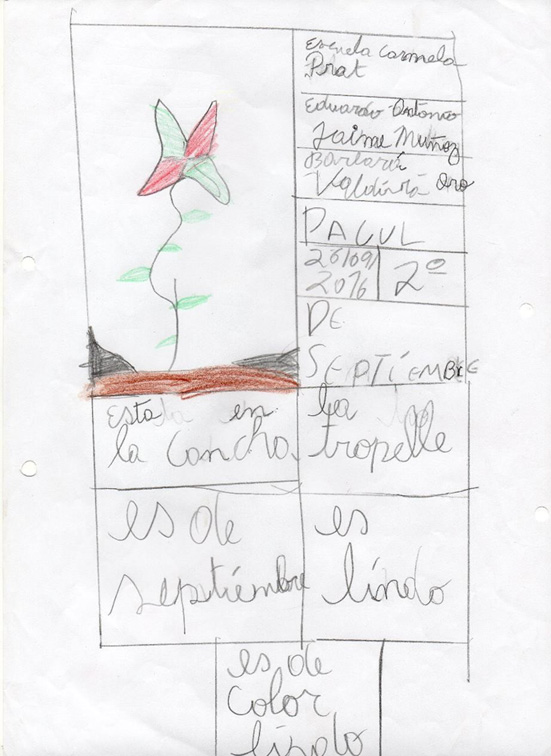 Escuela Carmela
Prat
Eduardo Antonio
Jaime Muñoz
Valdivia
PAGUL
26/09/
2016
2º
DE
SEPTIEMBRE
Está en
la Concha.
La
tropelle
es de
septiémbre
es
líndo
es de
color
líndo